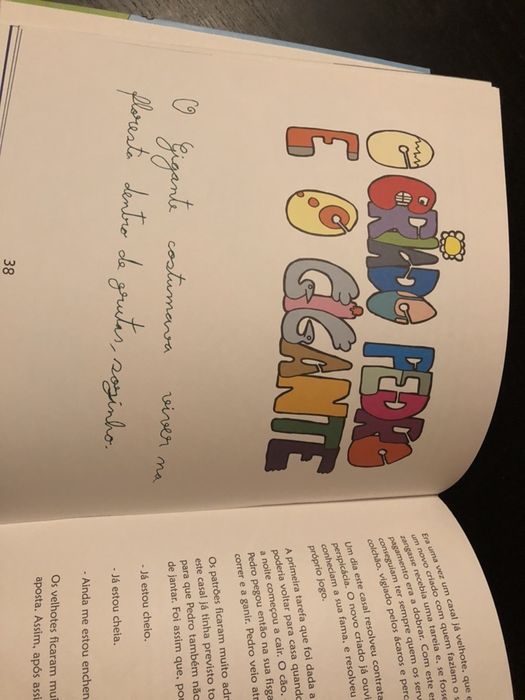 O CRIADO PEDRO
E O GIGANTE
O Gigante costumava viver na
floresta dentro de grutas, sozinho.
38
Era uma vez um casal já velhote, que
um novo criado com quem faziam
zangasse recebia uma tareia e, se fosse
pagamento era a dobrar. Com este
conseguiam ter sempre quem os
colchão, vigiado pelos ácaros e
Um dia este casal resolveu
perspicácia. O novo criado já
conheciam a sua fama, e resolveu
próprio jogo.
A primeira tarefa que foi dada a
poderia voltar para casa quando
a noite começou a cair. O cão,
Pedro pegou então na sua fisga
correr e a ganir. Pedro veio
Os patrões ficaram muito
este casal já tinha previsto
para que Pedro também não
de jantar. Foi assim que,
- Já estou cheio.
- Já estou cheia.
- Ainda me estou
Os velhotes ficaram
aposta. Assim, após